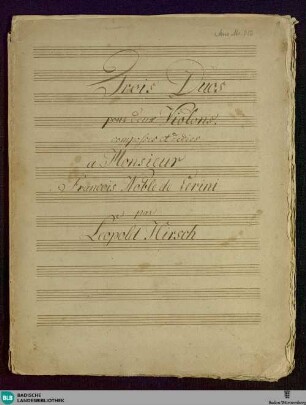 Trois Duos
pour deux Violons
composés et dédiés
a Monsieur
François Noble de
par
Leopold Hirsch
BLB
BADISCHE
LANDESBIBLIOTHEK
Baden-Württemberg